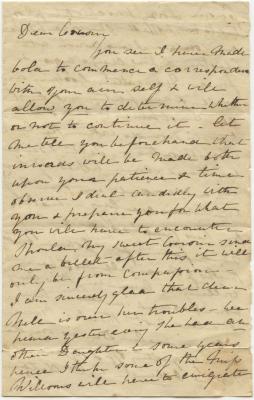 Dear Cousin
you see I have made
bold to commence a correspondence
with your own self & will
allow you to determine whether
or not to continue it - let
me tell you beforehand that
inroads will be made both
upon your patience & time
observe I deal candidly with
you & prepare you for what
you will have to encounter
Should my sweet Cousin send
me a billet after this it will
only be from Compassion -
I am sincerely glad that dear
is over her troubles - we
heard yesterday she had an
other Daughter - some years
hence I think some of the
will have to emigrate